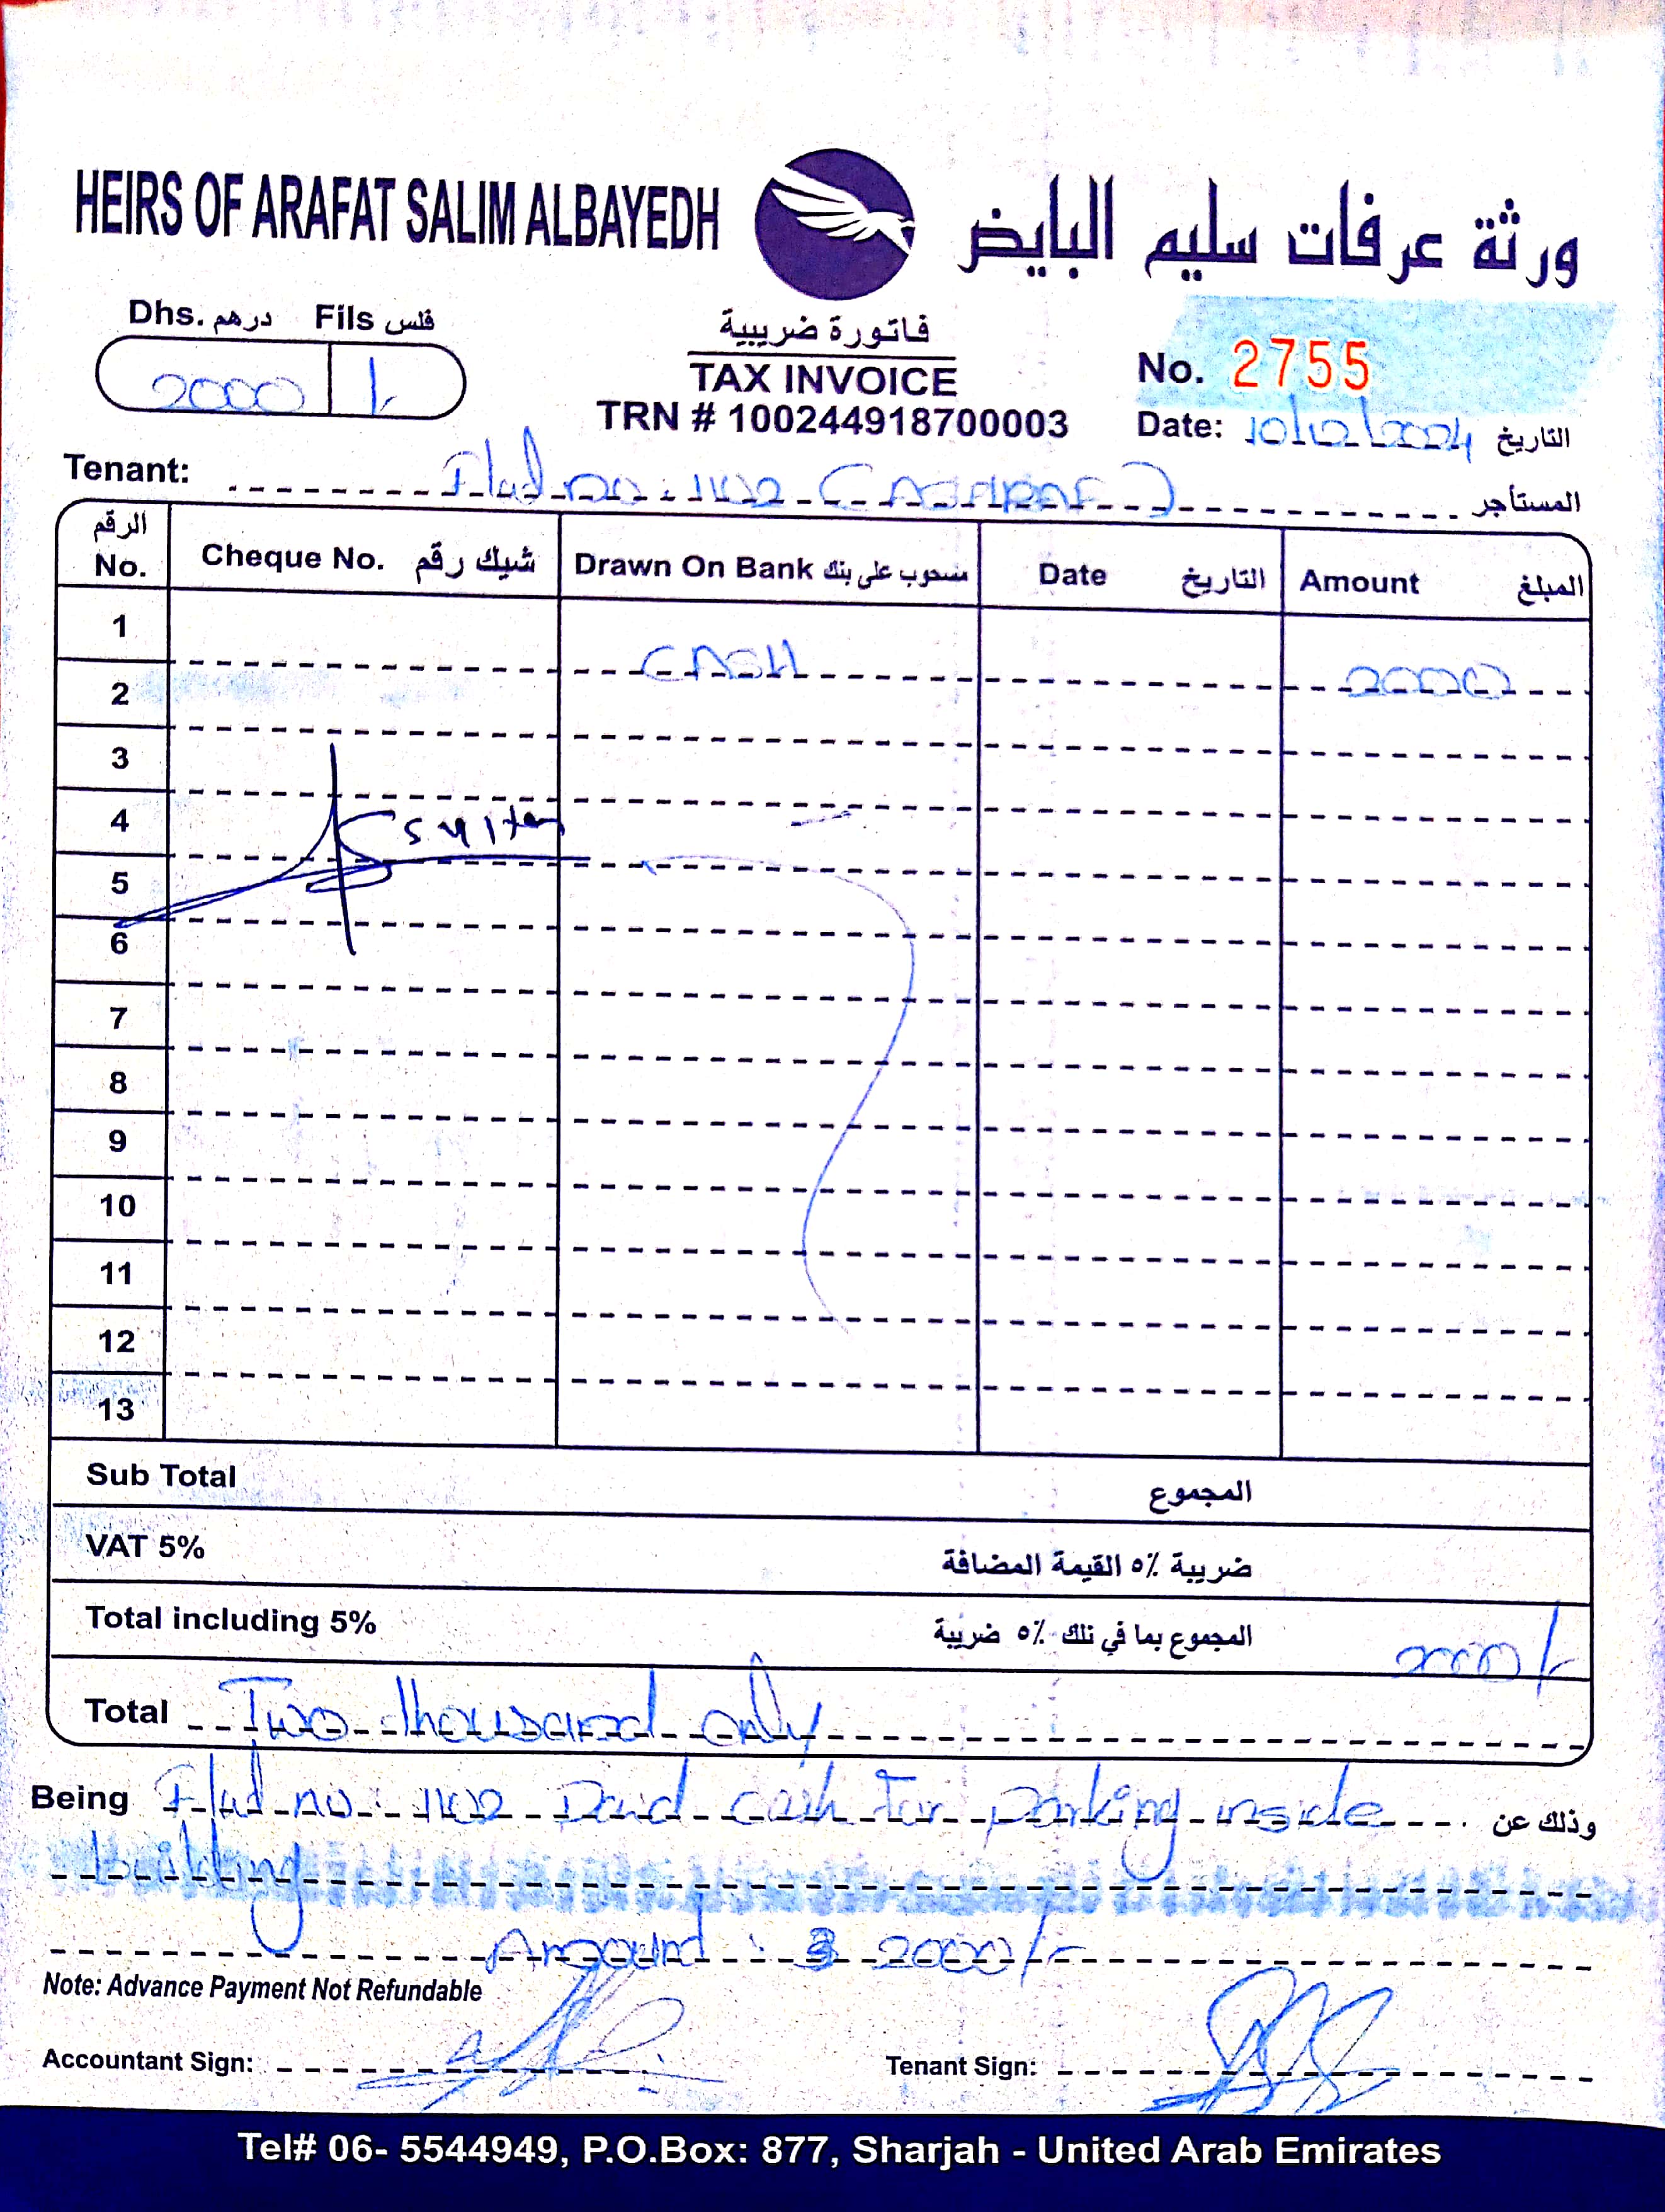 HEIRS OF ARAFAT SALIM ALBAYEDH ورثة عرفات سليم البايض
Dhs. درهم Fils فلس
2000 /-
فاتورة ضريبية
TAX INVOICE
TRN # 100244918700003
No. 2755
Date: 10/12/2024 التاريخ
Tenant: Flat no: 1102 المستأجر
الرقم No. Cheque No. شيك رقم Drawn On Bank مسحوب على بنك Date التاريخ Amount المبلغ
1 CASH 2000
2
3
4
5
6
7
8
9
10
11
12
13
Sub Total المجموع
VAT 5% ضريبة ٥٪ القيمة المضافة
Total including 5% المجموع بما في تلك ٥٪ ضريبة 2000/-
Total Two thousand only
Being Flat no: 1102 Paid cash for parking inside وذلك عن
building
Amount: 2000/-
Note: Advance Payment Not Refundable
Accountant Sign: Tenant Sign:
Tel# 06- 5544949, P.O.Box: 877, Sharjah - United Arab Emirates